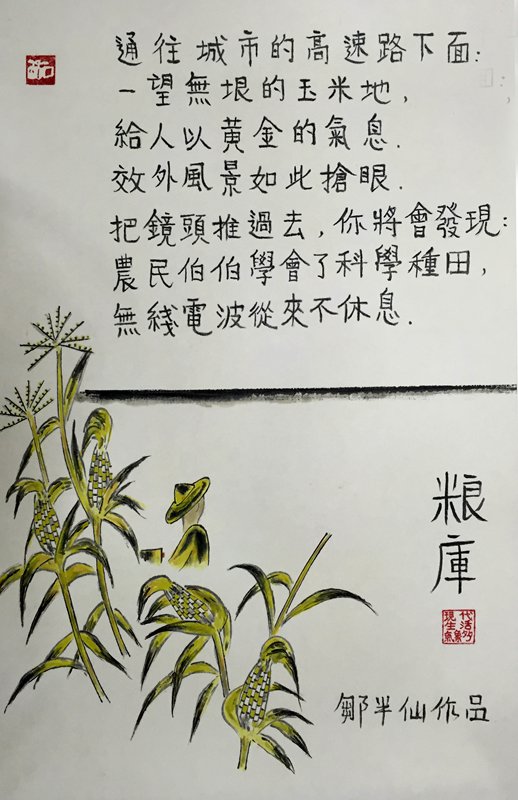 通往城市的高速路下面：
一望無垠的玉米地，
給人以黄金的氣息．
效外風景如此搶眼．
把鏡頭推過去，你將會發現：
農民伯伯學會了科學種田，
無綫電波從來不休息．
粮庫
鄒半仙作品